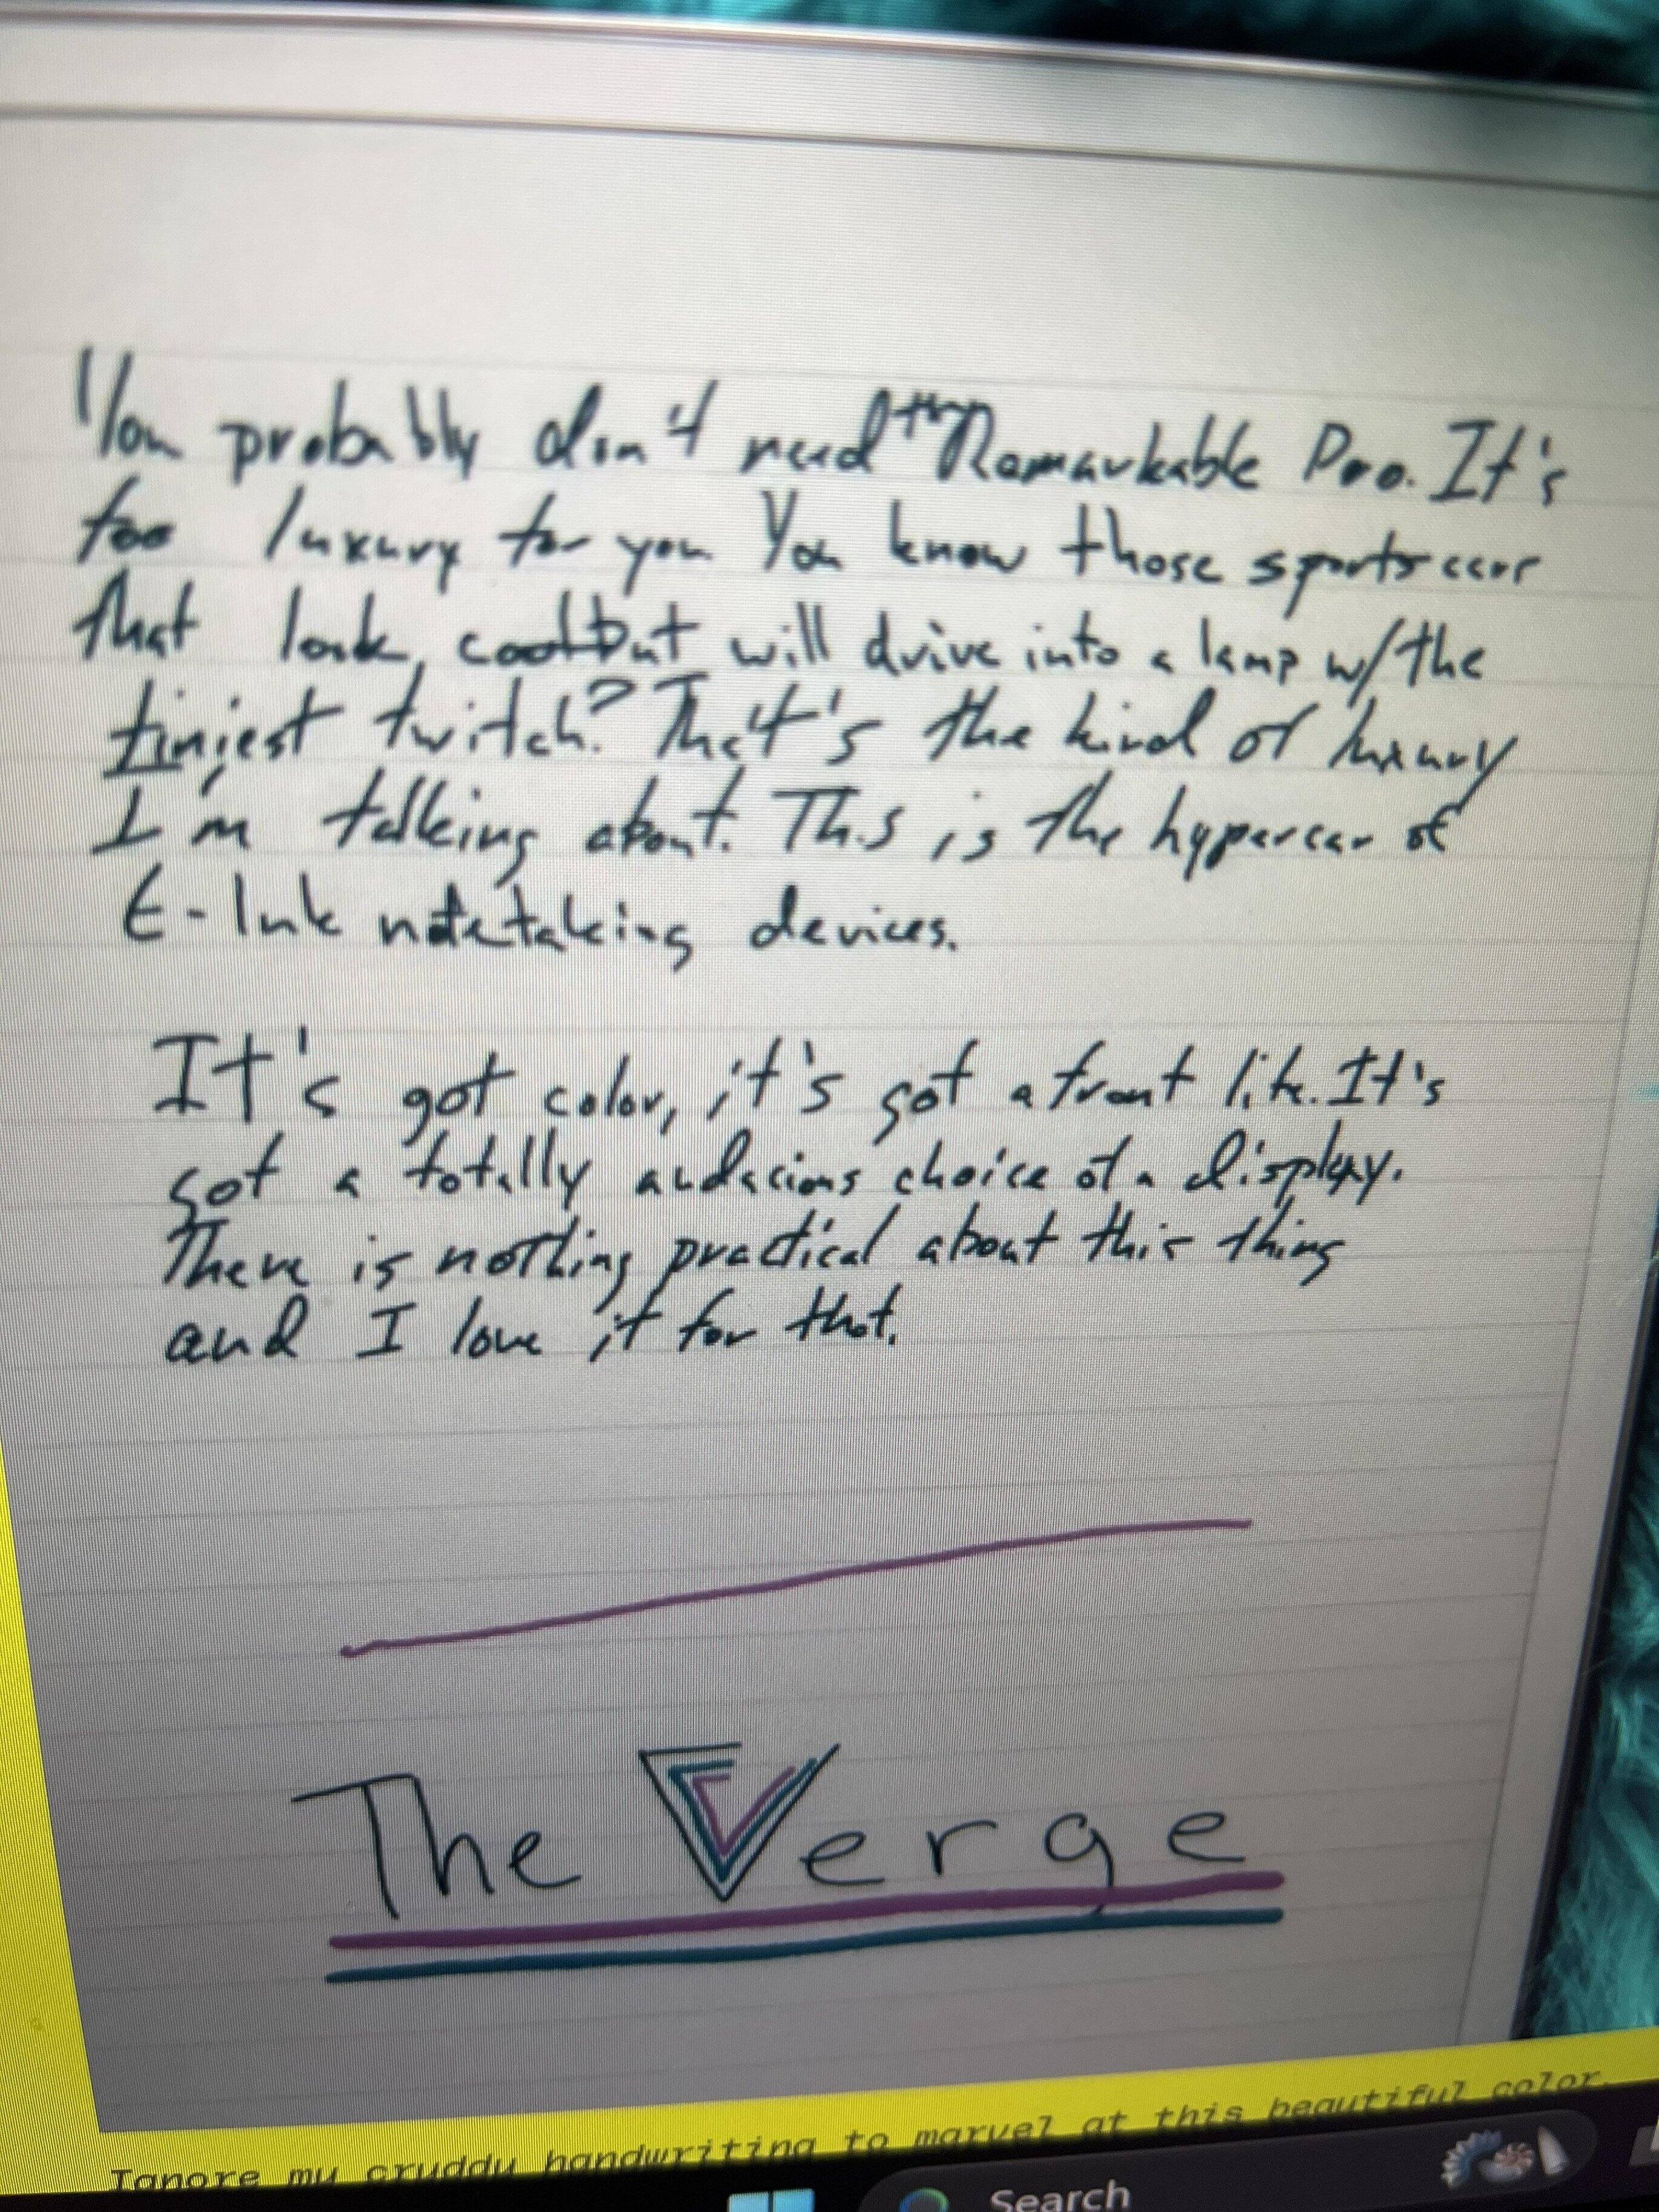 You probably don't need the Remarkable Pro. It's
too luxury for you You know those sports car
that look cool but will drive into a lamp w/the
tiniest twitch? That's the kind of luxury
I'm talking about. This is the hypercar of
E-Ink notetaking devices.
It's got color, it's got a front lite. It's
got a totally audacious choice of a display.
There is nothing practical about this thing
and I love it for that.
The Verge
Ignore my cruddy handwriting to marvel at this beautiful color.
Search